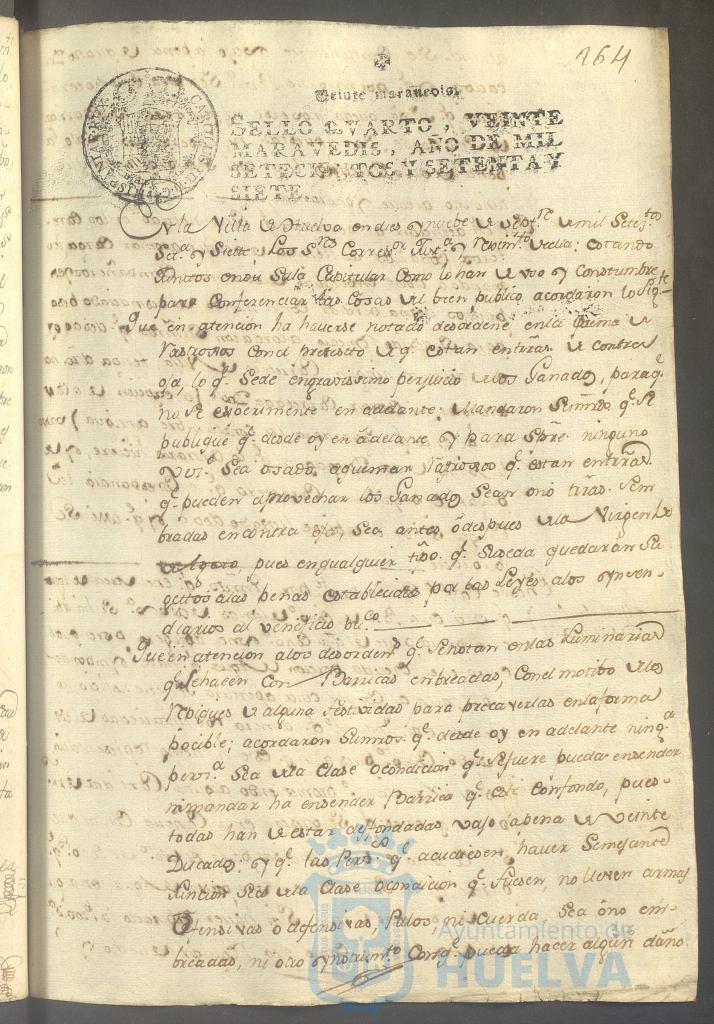 264
Veinte maravedis.
SELLO QVARTO, VEINTE
MARAVEDIS, AÑO DE MIL
SETECIENTOS Y SETENTA Y
SIETE.
En la Villa de Huelva en dies y nuebe de Sepre de mil Setesos
Seta y Siete: Los Sres Corregor Justa y Reximto de ella; estando
Juntos en su Sala Capitular como lo han de uso y Constumbre
para Conferenciar las Cosas del bien publico, acordaron lo Sigte
Que en atencion ha haverse notado desordene en la quema de
Rastrojos con el pretesto de q. estan en tierras de contra
oja, lo q. Sede en gravissimo perjuicio de los Ganados, para q.
no se experimente en adelante: Mandaron Sus mrds. q. se
publique q. desde oy en adelante, y para Spre. ninguno
Sea osado, a quemar rastrojos q. estan en tierras
q. pueden aprovechar los Ganados Sean ono trras. Sem
bradas en contra oja, Sea antes, o despues de la Virgen de
pues en qualquier tipo. q. Suseda quedarán Su
gettos alas penas establecidas por las Leyes a los Ynsen-
diarios al veneficio puco.
Que en atencion a los desordens q. Se notan en las Luminarias
q. Se hacen con Barricas enbreadas, con el motibo de los
Repiques de alguna festividad para precaverlas en la forma
pocible; acordaron Sus mrds. q. desde oy en adelante ninga
persa. Sea de la Clase o condicion q. se fuere pueda ensender
ni mandar ha ensender Barrica q. esté con fondo, pues
todas han de estar desfondadas vajo la pena de Veinte
Ducados: y q. las Pers.s q. acudiesen haver Semejante
funcion Sea de la Clase o condicion q. fuesen, no lleven armas
Ofensivas o defensivas, Palos, ni Cuerda Sea óno em-
breadas, ni otro ynstrumto con q. pueda hacer algun daño.
Ayuntamiento de
HUELVA